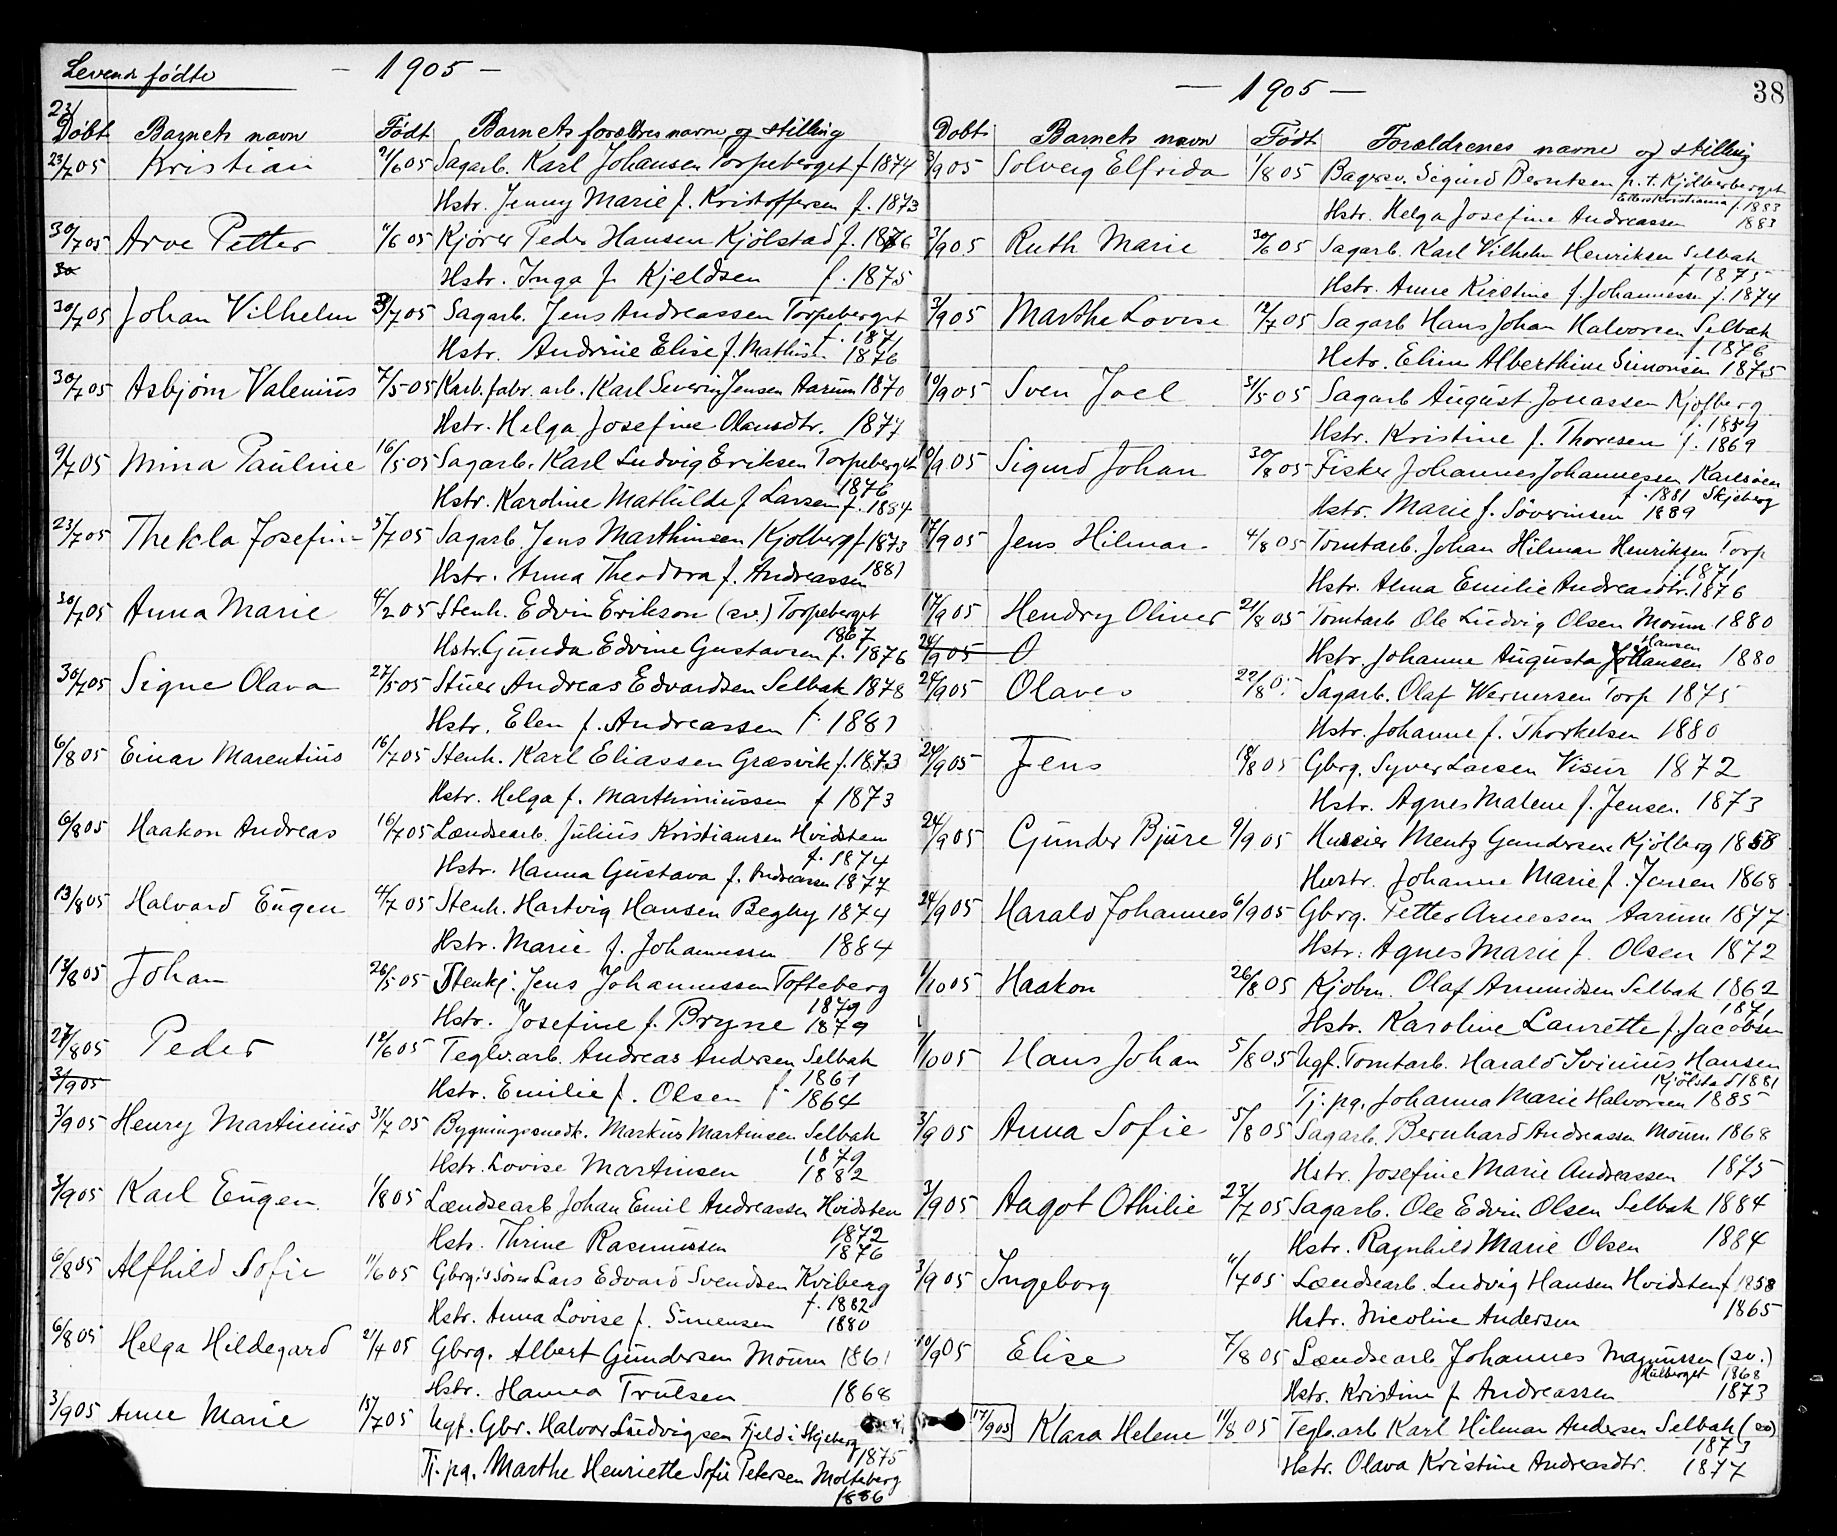 Levende födte
- 1905 -
23/
Döbt Barnets navn Född Barnets forældres navne og stilling
23/7 05 Kristian 21/6 05 Sagarb. Karl Johansen Torpeberget f 1874
Hstr. Jenny Marie f. Kristoffersen f. 1873
30/7 05 Arve Petter 11/6 05 Kjörer Peder Hansen Kjölstad f. 1876
30
Hstr. Inga f. Kjeldsen f. 1875
30/7 05 Johan Vilhelm 3/7 05 Sagarb. Jens Andreassen Torpeberget
f. 1871
Hstr. Andrine Elise f. Mathisen 1876
30/7 05 Asbjörn Valenius 7/5 05 Karb. fabr. arb. Karl Severin Jensen Aarum 1870
Hstr. Helga Josefine Olausdtr. 1877
9/7 05 Mina Pauline 16/5 05 Sagarb. Karl Ludvig Eriksen Torpeberget
1876
Hstr. Karoline Mathilde f Larsen f. 1884
23/7 05 Thekla Josefine 5/7 05 Sagarb. Jens Marthinsen Kjölberg f 1873
Hstr. Anna Theodora f. Andreassen 1881
30/7 05 Anna Marie 4/2 05 Stenh. Edvin Erikson (sv.) Torpeberget
1867
Hstr. Gunda Edvine Gustavsen f. 1876
30/7 05 Signe Olava 27/5 05 Stuer Andreas Edvardsen Selbak 1878
Hstr. Elen f. Andreassen f. 1881
6/8 05 Einar Marentius 16/7 05 Stenh. Karl Eliassen Græsvik f. 1873
Hstr. Helga f. Marthiniussen f 1873
6/8 05 Haakon Andreas 16/7 05 Lændsearb. Julius Kristiansen Hvidsten
f. 1874
Hstr. Hanna Gustava f. Andreassen 1877
13/8 05 Halvard Eugen 4/7 05 Stenh. Hartvig Hansen Begby 1874
Hstr. Marie f. Johannessen 1884
13/8 05 Johan 26/5 05 Stenkj. Jens Johannessen Tofteberg
1879
Hstr. Josefine f. Bryne 1879
27/8 05 Peder 12/6 05 Teglv.arb. Andreas Andersen Selbak
3/9 05
1861
Hstr. Emilie f. Olsen f. 1864
3/9 05 Henry Martinius 31/7 05 Bygningssnedk. Markus Martinsen Selbak
1879
Hstr. Lovise Martinsen 1882
3/9 05 Karl Eugen 1/8 05 Lændsearb Johan Emil Andreassen Hvidsten
1872
Hstr. Thrine Rasmussen 1876
6/8 05 Alfhild Sofie 11/6 05 Gbrgissöns Lars Edvard Svendsen Kviberg
f. 1882
Hstr. Anna Lovise f. Simensen 1880
6/8 05 Helga Hildegard 21/4 05 Gbrg. Albert Gundersen Moum 1861
Hstr. Hanna Trulsen 1868
3/9 05 Anne Marie 15/7 05 Ugf. Gbr. Halvor Ludvigsen Fjeld i Skjeberg
1875
Tj. pg. Marthe Henriette Sofie Petersen Molteberg
1886
- 1905 - 38
Dobt Barnets navn Född Forældrenes navne og stilling
3/9 05 Solveig Elfrida 1/8 05 Bagersv. Sigurd Berntsen p. t. Kjölberberget
Ellers Kristiania f. 1883
Hstr. Helga Josefine Andreassen 1883
3/9 05 Ruth Marie 30/6 05 Sagarb. Karl Vilhelm Henriksen Selbak
f 1875
Hstr. Anne Kirstine f. Johannessen f. 1874
3/9 05 Marthe Lovise 12/7 05 Sagarb Hans Johan Halvorsen Selbak
f 1876
Hstr. Eline Alberthine Simonsen 1875
10/9 05 Sven Joel 31/5 05 Sagarb August Jonassen Kjölberg
f. 1859
Hstr. Kristine f. Thoresen f. 1869
10/9 05 Sigurd Johan 30/8 05 Fisker Johannes Johannessen Karlsöen
f. 1881 Skjeberg
Hstr. Marie f. Söverinsen 1889
17/9 05 Jens Hilmar 4/8 05 Tomtarb. Johan Hilmar Henriksen Torp
1871
Hstr. Alma Emilie Andreasdtr. 1876
17/9 05 Hendry Oliver 21/8 05 Tomtarb Ole Ludvig Olsen Moum 1880
24/9 05 O
Hansen
Hstr. Johanne Augusta Johansen 1880
24/9 05 Olaves 22/8 05 Sagarb. Olaf Wernersen Torp 1875
Hstr. Johanne f. Thorkelsen 1880
24/9 05 Jens 18/8 05 Gbrg. Syver Larsen Visur 1872
Hstr. Agnes Malene f. Jensen. 1873
24/9 05 Gunder Bjure 9/9 05 Huseier Mentz Gundersen Kjölberg 1858
Hustr. Johanne Marie f. Jensen 1868
24/9 05 Harald Johannes 6/9 05 Gbrg. Petter Arnessen Aarum 1877
Hstr. Agnes Marie f. Olsen 1872
1/10 05 Haakon 26/8 05 Kjöbm. Olaf Amundsen Selbak 1862
1871
Hstr. Karoline Laurette f. Jacobsen
1/10 05 Hans Johan 5/8 05 Ugf. Tomtarb. Harald Ivinius Hansen
Kjölstad 1881
Tj. pg. Johanna Marie Halvorsen 1885
3/9 05 Anna Sofie 5/8 05 Sagarb. Bernhard Andreassen Moum 1868
Hstr. Josefine Marie Andreassen 1875
3/9 05 Aagot Othilie 23/7 05 Sagarb. Ole Edvin Olsen Selbak 1884
Hstr. Ragnhild Marie Olsen 1884
3/9 05 Ingeborg 11/7 05 Lændsearb. Ludvig Hansen Hvidsten f 1858
Hstr. Nicoline Andersen 1865
10/9 05 Elise 7/8 05 Lændsearb Johannes Magnussen (sv.)
1868
Hstr. Kristine f. Andreassen 1873
17/9 05 Klara Helene 11/8 05 Teglv.arb Karl Hilmar Andersen Selbak (sv)
1873
Hstr. Olava Kristine Andreasdtr. 1877